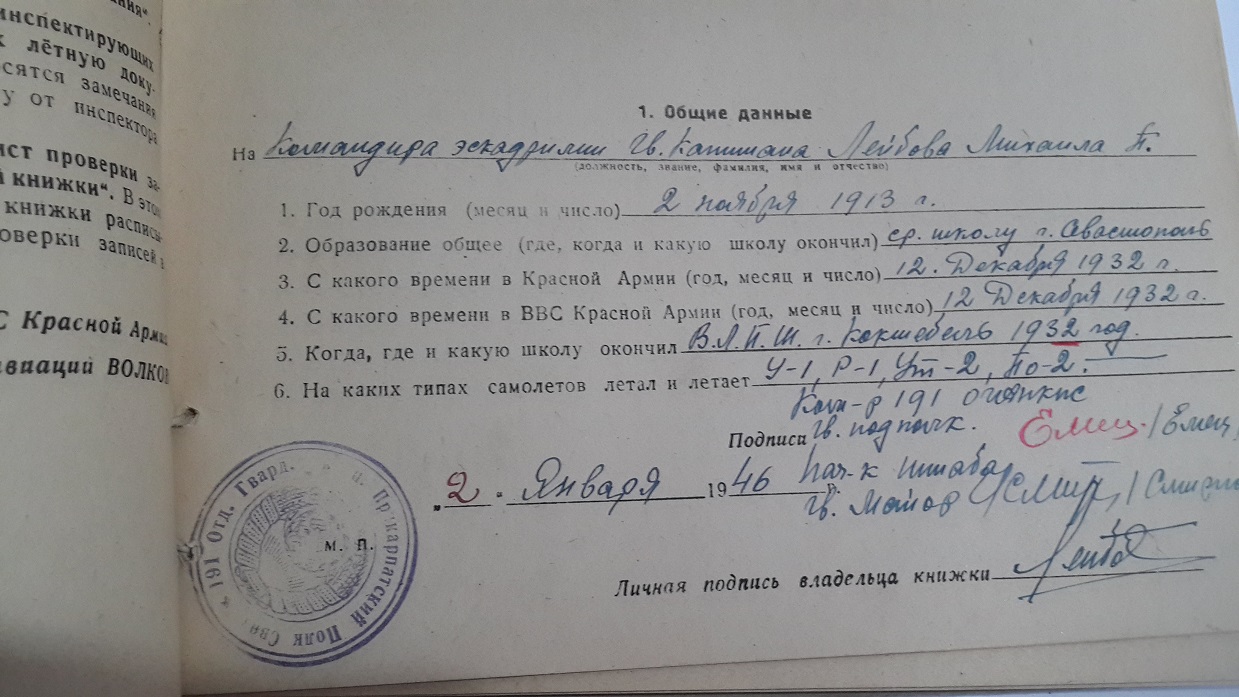 ния".
инспектирующих
к лётную доку-
осятся замечания
у от инспектора
ист проверки за-
й книжки". В этом
книжки расписы-
оверки записей в
С Красной Армии
авиаций ВОЛКОВ
1. Общие данные
На Командира эскадрилии Гв. Капитана Лейбова Михаила П.
(должность, звание, фамилия, имя и отчество)
1. Год рождения (месяц и число) 2 ноября 1913 г.
2. Образование общее (где, когда и какую школу окончил) ср. школу г. Севастополь
3. С какого времени в Красной Армии (год, месяц и число) 12. Декабря 1932 г.
4. С какого времени в ВВС Красной Армии (год, месяц и число) 12 Декабря 1932 г.
5. Когда, где и какую школу окончил В.Л.П.Ш. г. Коктебель 1932 год.
6. На каких типах самолетов летал и летает У-1, Р-1, Ут-2, По-2.
Ком-р 191
Подписи Гв. подполк. Емец /Емец/
2. Января 1946 г. Нач-к штаба
Гв. Майор /Смирн
м. п.
191 Отд. Гвард. Прикарпатский Полк Связи
Личная подпись владельца книжки Лейбов